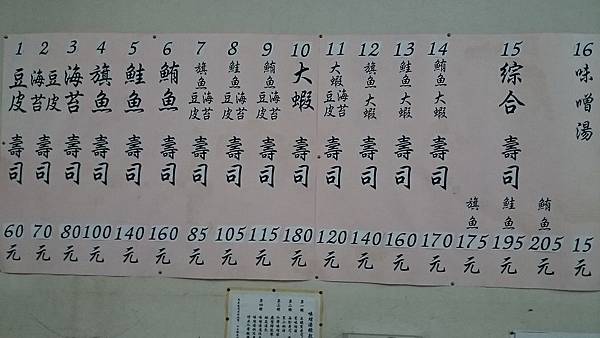 1 豆皮 壽司 60元
2 海苔 豆皮 壽司 70元
3 海苔 壽司 80元
4 旗魚 壽司 100元
5 鮭魚 壽司 140元
6 鮪魚 壽司 160元
7 旗魚 海苔 豆皮 壽司 85元
8 鮭魚 海苔 豆皮 壽司 105元
9 鮪魚 海苔 豆皮 壽司 115元
10 大蝦 壽司 180元
11 大蝦 海苔 豆皮 壽司 120元
12 旗魚 大蝦 壽司 140元
13 鮭魚 大蝦 壽司 160元
14 鮪魚 大蝦 壽司 170元
15 綜合 壽司
旗魚 175元
鮭魚 195元
鮪魚 205元
16 味噌湯 15元